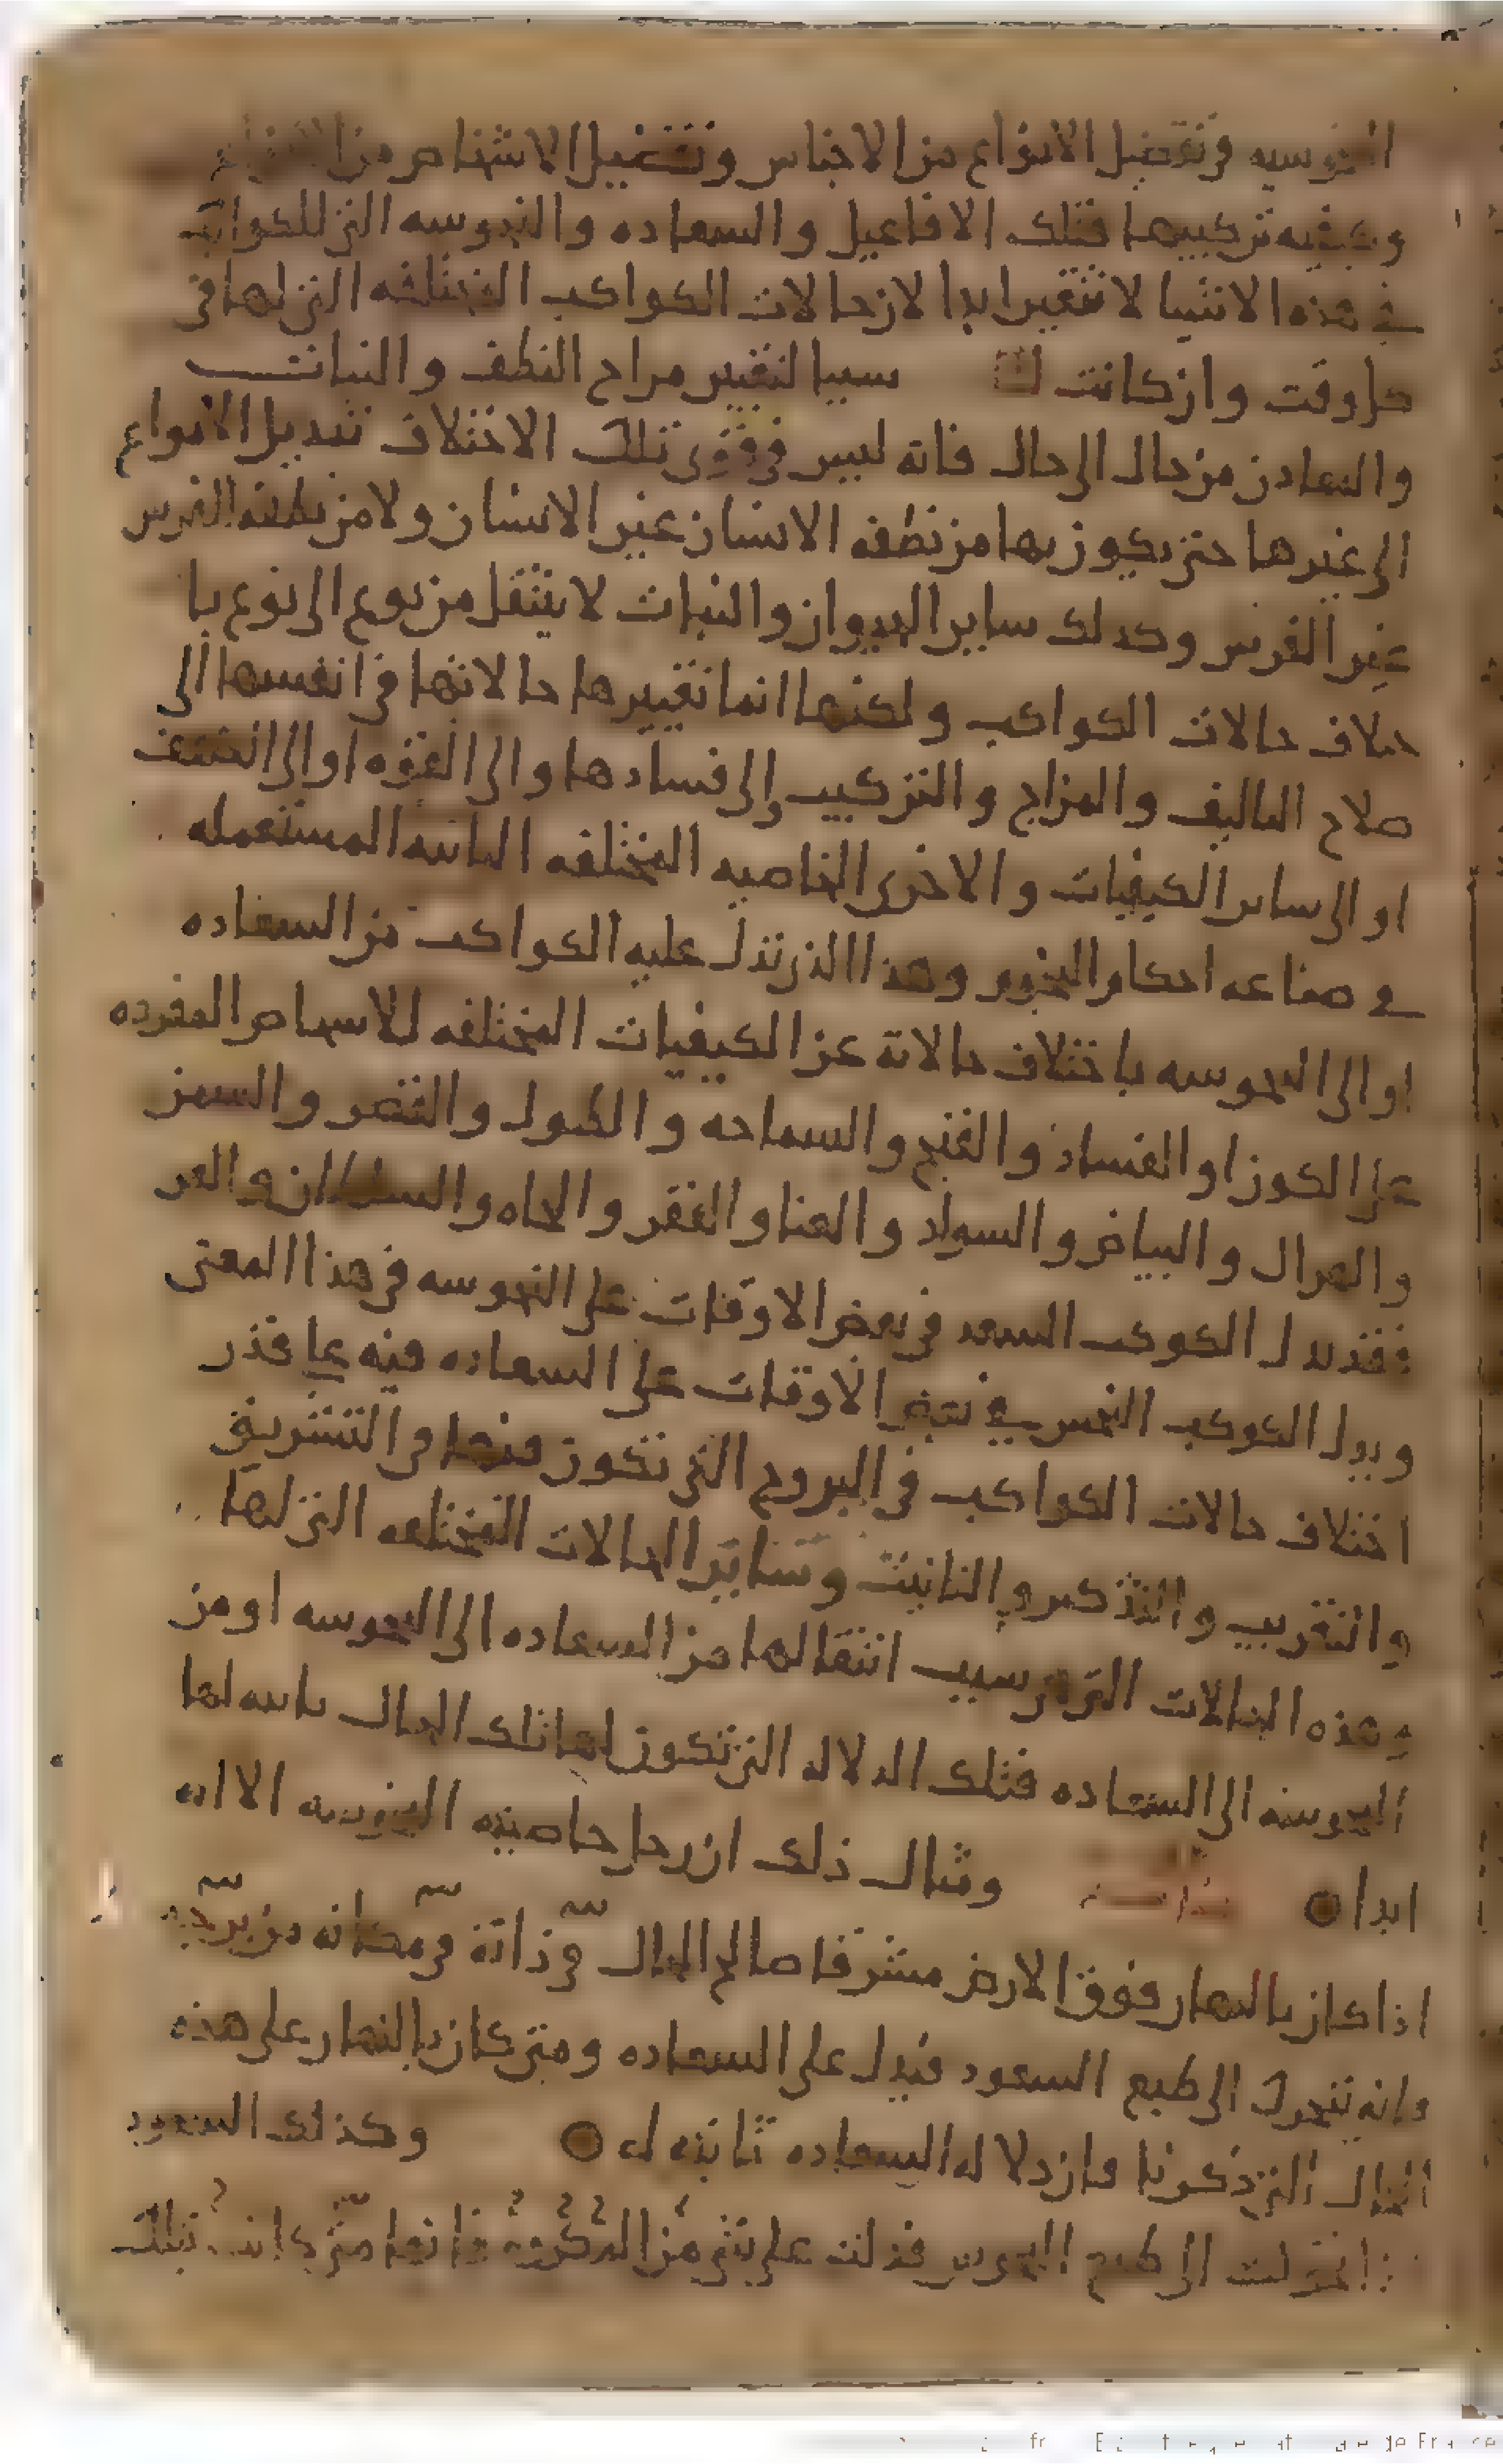 النحوسيه في تفصيل الانواع من الاجناس وتفصيل الاشخاص من الانواع
وكيفيه تركيبها فتلك الافاعيل والسعاده والنحوسه التي للكواكب
في هذه الاشيا لا تتغير ابدا لان حالات الكواكب المختلفه التي لها في
كل وقت وان كانت سببا لتغيير مزاج النطف والنبات
والمعادن من حال الى حال فانه ليس في قوى تلك الاختلاف تبديل الانواع
الى غيرها حتى يكون بها من نطفه الانسان غير الانسان ولا من نطفه الفرس
غير الفرس وكدلك ساير الحيوان والنبات لا ينتقل من نوع الى نوع با
ختلاف حالات الكواكب ولكنها انما تغييرها حالاتها في انفسها الى
صلاح التاليف والمزاج والتركيب والى فسادها والى القوه او الى الضعف
او الى ساير الكيفيات والاخرى الخاصيه المختلفه المستعمله
في صناعه احكام النجوم وهذا الذي تدل عليه الكواكب من السعاده
او الى النحوسه باختلاف حالاته عن الكيفيات المختلفه للاشخاص المفرده
على الكون او الفساد والقبح والسماجه والطول والقصر والسمن
والهزال والبياض والسواد والغنا والفقر والجاه والسلطان والعز
فقد يدل الكوكب السعد في بعض الاوقات على النحوسه في هذا المعنى
ويدل الكوكب النحس في بعض الاوقات على السعاده فيه على قدر
اختلاف حالات الكواكب في البروج التي تكون فيها في التشريق
والتغريب والتذكير والتانيث وساير الحالات المختلفه التي لها
وهذه الحالات التي هي سبب انتقالها من السعاده الى النحوسه او من
النحوسه الى السعاده فتلك الدلاله التي تكون لها تلك الحال ثابته لها
ابدا ○ ومثال ذلك ان زحل خاصيته النحوسه الا انه
اذا كان بالنهار فوق الارض مشرقا صالح الحال في ذاته في مكانه من برجه
فانه يتحول الى طبع السعود فيدل على السعاده ومتى كان بالنهار على هذه
الحال التي ذكرنا فان دلاله السعاده ثابته له ○ وكذلك السعود
اذا تحولت الى طبع النحوس فدلت على شي من المكروه فانها متى كانت بتلك